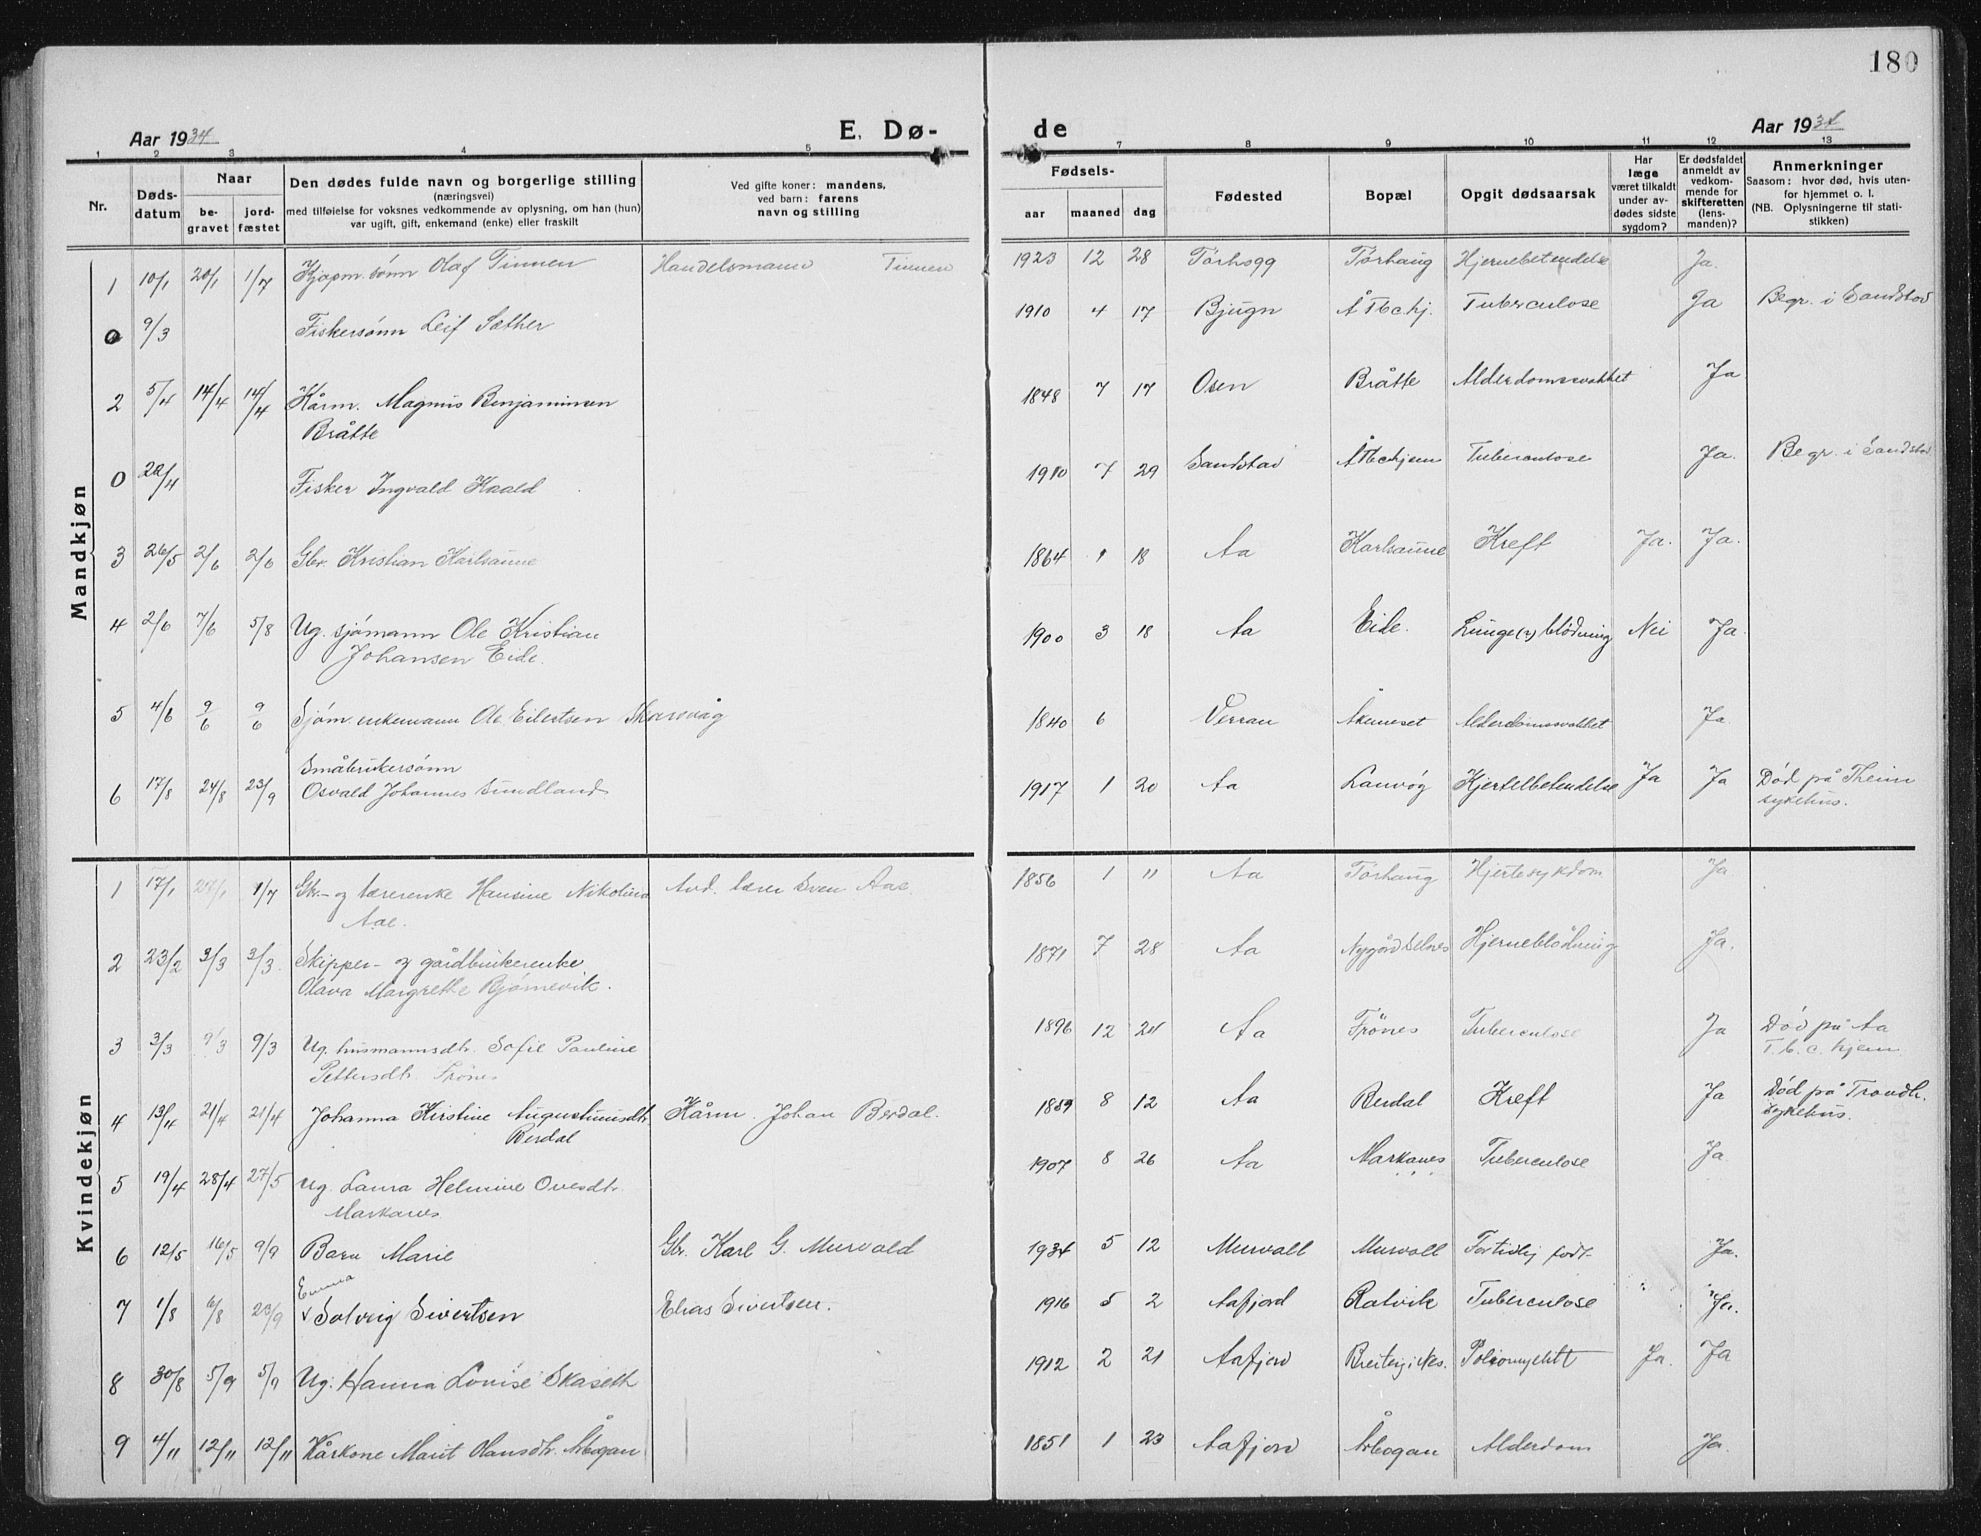 180
Aar 1934
E. Dø-
de
Aar 1934
1 2 3 4 5 7 8 9 10 11 12 13
Nr.
Døds-
datum
Naar
be-
gravet
jord-
fæstet
Den dødes fulde navn og borgerlige stilling
(næringsvei)
med tilføielse for voksnes vedkommende av oplysning, om han (hun)
var ugift, gift, enkemand (enke) eller fraskilt
Ved gifte koner: mandens,
ved barn: farens
navn og stilling
Fødsels-
aar maaned dag
Fødested
Bopæl
Opgit dødsaarsak
Har
læge
været tilkaldt
under av-
dødes sidste
sygdom?
Er dødsfaldet
anmeldt av
vedkom-
mende for
skifteretten
(lens-
manden)?
Anmerkninger
Saasom: hvor død, hvis uten-
for hjemmet o. l.
(NB. Oplysningerne til stati-
stikken)
Mandkjøn
1 10/1 20/1 1/7 Kjøpm. sønn Olaf Tinnen Handelsmann Tinnen 1923 12 28 Tørhogg Tørhaug Hjernebetendelse Ja.
0 9/3 Fiskersønn Leif Sæther 1910 4 17 Bjugn Å Tbc hj. Tuberculose Ja Begr. i Sandstad
2 5/4 14/4 14/4 Kårm. Magnus Benjaminsen
Bråtte 1848 7 17 Osen Bråtte Alderdomssvakhet Ja
0 20/4 Fisker Ingvald Kaald 1910 7 29 Sandstad Å Tbc hjem Tuberculose Ja. Begr. i Sandstad
3 26/5 2/6 2/6 Gbr. Kristian Karlsaune 1864 9 18 Aa Karlsaune Kreft Ja. Ja.
4 2/6 7/6 5/8 Ug. sjømann Ole Kristian
Johansen Eide. 1900 3 18 Aa Eide. Lunge(?) blödning Nei Ja.
5 4/6 9/6 9/6 Sjøm enkemann Ole Eilertsen Skarsvåg 1840 6 Verran Åkerneset Alderdomssvakhet Ja.
6 17/8 24/8 23/9 Småbrukersønn
Osvald Johannes Sundland 1917 1 20 Aa Lauvøy Kjertelbetendelse Ja Ja Död på Theim
sykehus.
Kvindekjøn
1 17/1 27/1 1/7 Gbr.- og lærerenke Hansine Nikolina
Aae. Avd. lærer Sven Aae. 1856 1 11 Aa Tørhaug Hjertesykdom Ja
2 23/2 3/3 3/3. Skipper- og gårdbrukerenke
Olava Margrethe Bjørnevik. 1871 7 28 Aa Nygård Selnes Hjerneblödning Ja.
3 3/3 9/3 9/3 Ug. husmannsdtr. Sofie Pauline
Pettersdtr. Frönes 1896 12 24 Aa Frönes Tuberculose Ja Död på Aa
T. b. c. hjem
4 13/4 21/4 21/4 Johanna Kirstine Augustinusdtr.
Berdal Kårm. Johan Berdal. 1859 8 12 Aa Berdal Kreft Ja Död på Trondh.
sykehus.
5 19/4 28/4 27/5 Ug. Laura Helmine Ovesdtr.
Markanes 1907 8 26 Aa Markanes Tuberculose Ja
6 12/5 16/5 9/9 Barn Marie Gbr. Karl G. Murvold 1934 5 12 Murvoll Murvoll For tidlig født. Ja.
Emma
7 1/8 6/8 23/9 v Solveig Sivertsen Elias Sivertsen. 1916 5 2 Aafjord Ratvik Tuberculose " "Ja.
8 30/8 5/9 5/9 Ug. Hanna Lovise Skaseth 1912 2 21 Aafjord Breivig i Nes. Poliomyelitt Ja. Ja
9 4/11 12/11 12/11 Kårkone Marit Olausdtr. Årbogan 1851 1 23 Aafjord Årbogan Alderdom Ja.